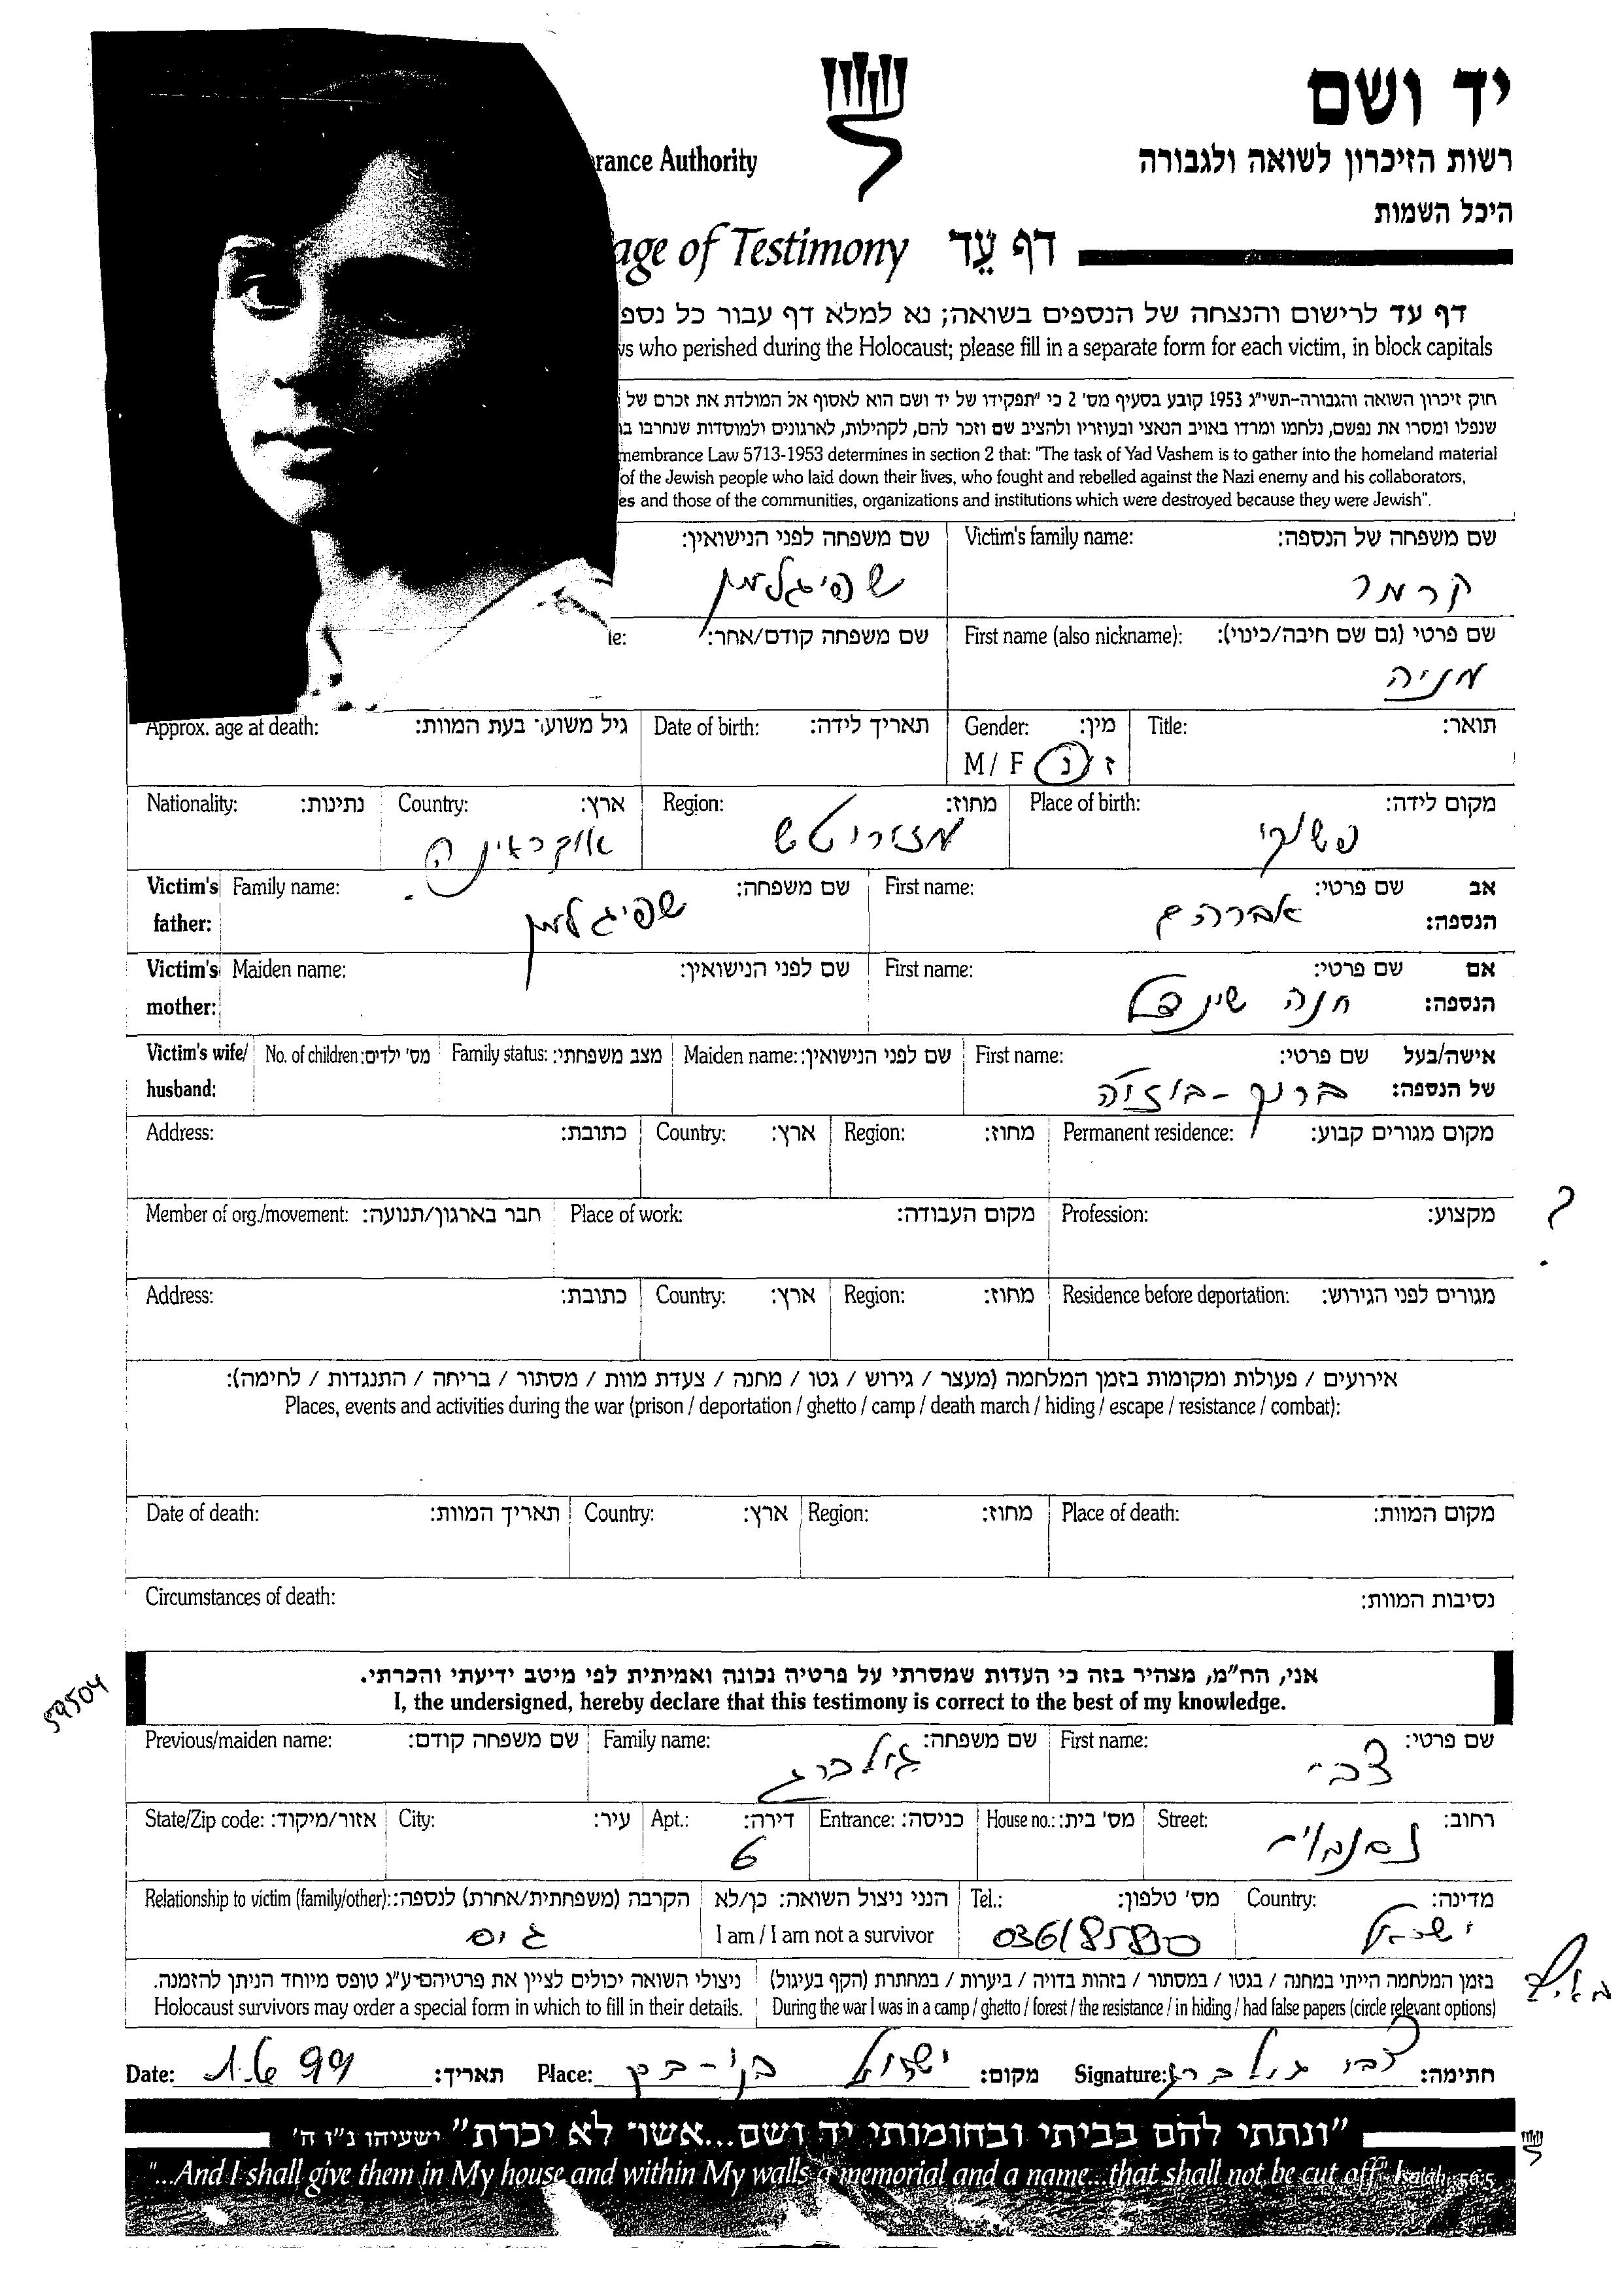 יד ושם
רשות הזיכרון לשואה ולגבורה
rance Authority
היכל השמות
age of Testimony דף עֵד
דף עד לרישום והנצחה של הנספים בשואה; נא למלא דף עבור כל נספ
s who perished during the Holocaust; please fill in a separate form for each victim, in block capitals
חוק זיכרון השואה והגבורה-תשי"ג 1953 קובע בסעיף מס' 2 כי "תפקידו של יד ושם הוא לאסוף אל המולדת את זכרם של
שנפלו ומסרו את נפשם, נלחמו ומרדו באויב הנאצי ובעוזריו ולהציב שם וזכר להם, לקהילות, לארגונים ולמוסדות שנחרבו ב
membrance Law 5713-1953 determines in section 2 that: "The task of Yad Vashem is to gather into the homeland material
of the Jewish people who laid down their lives, who fought and rebelled against the Nazi enemy and his collaborators,
es and those of the communities, organizations and institutions which were destroyed because they were Jewish".
שם משפחה של הנספה: Victim's family name: שם משפחה לפני הנישואין:
קרמר שפיגלמן
שם פרטי (גם שם חיבה/כינוי): First name (also nickname): שם משפחה קודם/אחר: te:
מניה
תואר: Title: מין: Gender: תאריך לידה: Date of birth: גיל משוער בעת המוות: Approx. age at death:
ז / נ M / F
מקום לידה: Place of birth: מחוז: Region: ארץ: Country: נתינות: Nationality:
מזריטש אוקראינה
אב שם פרטי: First name: שם משפחה: Family name: Victim's
הנספה: אברהם שפיגלמן father:
אם שם פרטי: First name: שם לפני הנישואין: Maiden name: Victim's
הנספה: חנה שינדל mother:
אישה/בעל שם פרטי: First name: שם לפני הנישואין: Maiden name: מצב משפחתי: Family status: מס' ילדים: No. of children: Victim's wife/
של הנספה: ברוך husband:
מקום מגורים קבוע: Permanent residence: מחוז: Region: ארץ: Country: כתובת: Address:
מקצוע: Profession: מקום העבודה: Place of work: חבר בארגון/תנועה: Member of org./movement:
?
מגורים לפני הגירוש: Residence before deportation: מחוז: Region: ארץ: Country: כתובת: Address:
אירועים / פעולות ומקומות בזמן המלחמה (מעצר / גירוש / גטו / מחנה / צעדת מוות / מסתור / בריחה / התנגדות / לחימה):
Places, events and activities during the war (prison / deportation / ghetto / camp / death march / hiding / escape / resistance / combat):
מקום המוות: Place of death: מחוז: Region: ארץ: Country: תאריך המוות: Date of death:
נסיבות המוות: Circumstances of death:
אני, הח"מ, מצהיר בזה כי העדות שמסרתי על פרטיה נכונה ואמיתית לפי מיטב ידיעתי והכרתי.
I, the undersigned, hereby declare that this testimony is correct to the best of my knowledge.
59504
שם פרטי: First name: שם משפחה: Family name: שם משפחה קודם: Previous/maiden name:
צבי גולברג
רחוב: Street: מס' בית: House no.: כניסה: Entrance: דירה: Apt.: עיר: City: אזור/מיקוד: State/Zip code:
6
מדינה: Country: מס' טלפון: Tel.: הנני ניצול השואה: כן/לא הקרבה (משפחתית/אחרת) לנספה: Relationship to victim (family/other):
ישראל 036185830 I am / I am not a survivor גיס
בזמן המלחמה הייתי במחנה / בגטו / במסתור / בזהות בדויה / ביערות / במחתרת (הקף בעיגול) ניצולי השואה יכולים לציין את פרטיהם ע"ג טופס מיוחד הניתן להזמנה.
During the war I was in a camp / ghetto / forest / the resistance / in hiding / had false papers (circle relevant options) Holocaust survivors may order a special form in which to fill in their details.
חתימה: צבי גולברג Signature: מקום: ישראל בני-ברק Place: תאריך: 99 Date:
"ונתתי להם בביתי ובחומותי יד ושם...אשר לא יכרת" ישעיהו נ"ו ה'
"...And I shall give them in My house and within My walls a memorial and a name...that shall not be cut off" Isaiah, 56:5